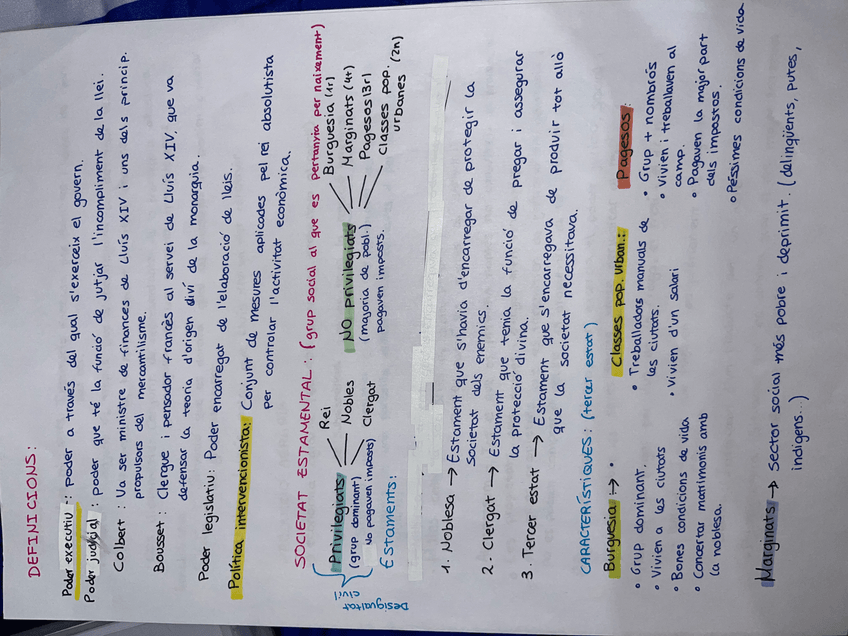 DEFINICIONS:
Poder executiu: poder a través del qual s'exerceix el govern.
Poder judicial poder que té la funció de jutjar l'incompliment de la llei.
Colbert: Va ser ministre de finances de Lluís XIV i uns dels princip.
propulsors del mercantilisme.
Bousset: Clergue i pensador francès al servei de Lluís XIV, que va
defensar la teoria d'origen diví de la monarquia.
Poder legislatiu: Poder encarregat de l'elaboració de lleis.
Política intervencionista: Conjunt de mesures aplicades pel rei absolutista
per controlar l'activitat econòmica.
SOCIETAT ESTAMENTAL: (grup social al que es pertanyia per naixement)
Desigualtat
civil
Privilegiats
(grup dominant)
No pagaven imposts)
Rei
Nobles
Clergat
NO privilegiats
(majoria de pobl.)
pagaven imposts.
Burguesia (1r)
Marginats (4t)
Pagesos (3r)
Classes pop.
urbanes (2n)
Estaments:
1. Noblesa → Estament que s'havia d'encarregar de protegir la
societat dels enemics.
2. Clergat → Estament que tenia la funció de pregar i assegurar
la protecció divina.
3. Tercer estat → Estament que s'encarregava de produir tot allò
que la societat necessitava.
CARACTERÍSTIQUES: (tercer estat)
Burguesia →
• Grup dominant.
• Vivien a les ciutats
• Bones condicions de vida
• Concertar matrimonis amb
la noblesa.
Classes pop. urban.:
• Treballadors manuals de
les ciutats.
• Vivien d'un salari
Pagesos:
• Grup + nombrós
• Vivien i treballaven al
camp.
• Pagaven la major part
dels impostos.
• Pèssimes condicions de vida
Marginats → Sector social més pobre i deprimit. (delinqüents, putes,
indigens...)